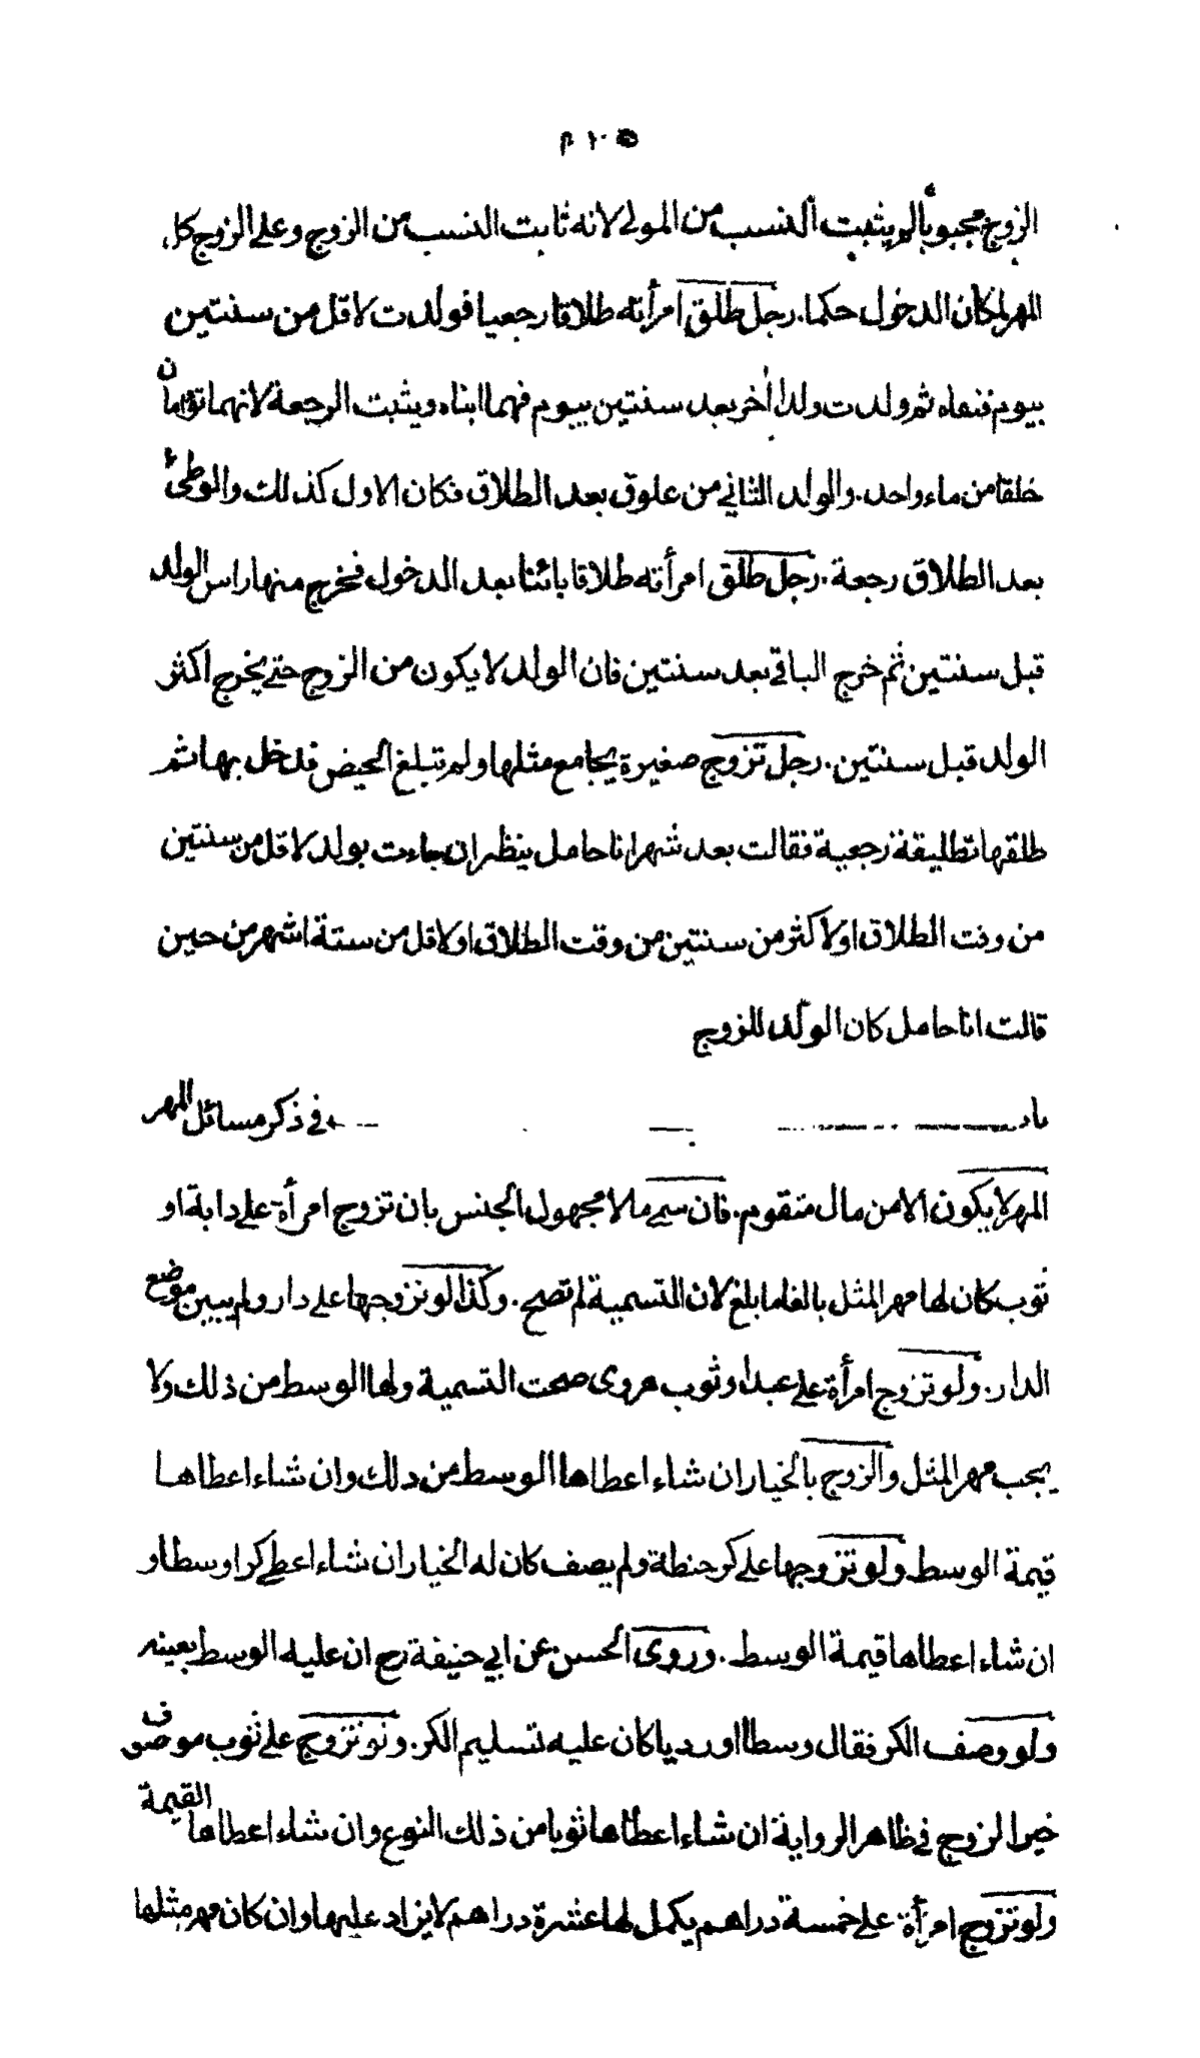 الزوج مجبوباً لم يثبت النسب من المولى لانه ثابت النسب من الزوج وعلى الزوج كل
المهر لمكان الدخول حكما. رجل طلق امرأته طلاقا رجعيا فولدت لاقل من سنتين
بيوم فنفاه ثم ولدت ولدا اخر بعد سنتين بيوم فهما ابناه ويثبت الرجعة لانهما توأمان
خلقا من ماء واحد. والولد الثاني من علوق بعد الطلاق فكان الاول كذلك والوطئ
بعد الطلاق رجعة. رجل طلق امرأته طلاقا بائنا بعد الدخول فخرج منها راس الولد
قبل سنتين ثم خرج الباقي بعد سنتين فان الولد لا يكون من الزوج حتى يخرج اكثر
الولد قبل سنتين. رجل تزوج صغيرة يجامع مثلها ولم تبلغ الحيض فدخل بها ثم
طلقها تطليقة رجعية فقالت بعد شهر انا حامل ينظر ان جاءت بولد لاقل من سنتين
من وقت الطلاق او لاكثر من سنتين من وقت الطلاق او لاقل من ستة اشهر من حين
قالت انا حامل كان الولد للزوج
باب في ذكر مسائل المهر
المهر لا يكون الا من مال متقوم. فان سمى مالا مجهول الجنس بان تزوج امرأة على دابة او
ثوب كان لها مهر المثل بالغا ما بلغ لان التسمية لم تصح. وكذا لو تزوجها على دار ولم يبين موضع
الدار. ولو تزوج امرأة على عبد او ثوب هروى صحت التسمية ولها الوسط من ذلك ولا
يجب مهر المثل والزوج بالخيار ان شاء اعطاها الوسط من ذلك وان شاء اعطاها
قيمة الوسط ولو تزوجها على كر حنطة ولم يصف كان له الخيار ان شاء اعطى كرا وسطا و
ان شاء اعطاها قيمة الوسط. وروى الحسن عن ابي حنيفة رح ان عليه الوسط بعينه
ولو وصف الكر فقال وسطا او رديا كان عليه تسليم الكر. ولو تزوج على ثوب موصوف
خير الزوج في ظاهر الرواية ان شاء اعطاها ثوبا من ذلك النوع وان شاء اعطاها القيمة
ولو تزوج امرأة على خمسة دراهم يكمل لها عشرة دراهم لا يزاد عليها وان كان مهر مثلها